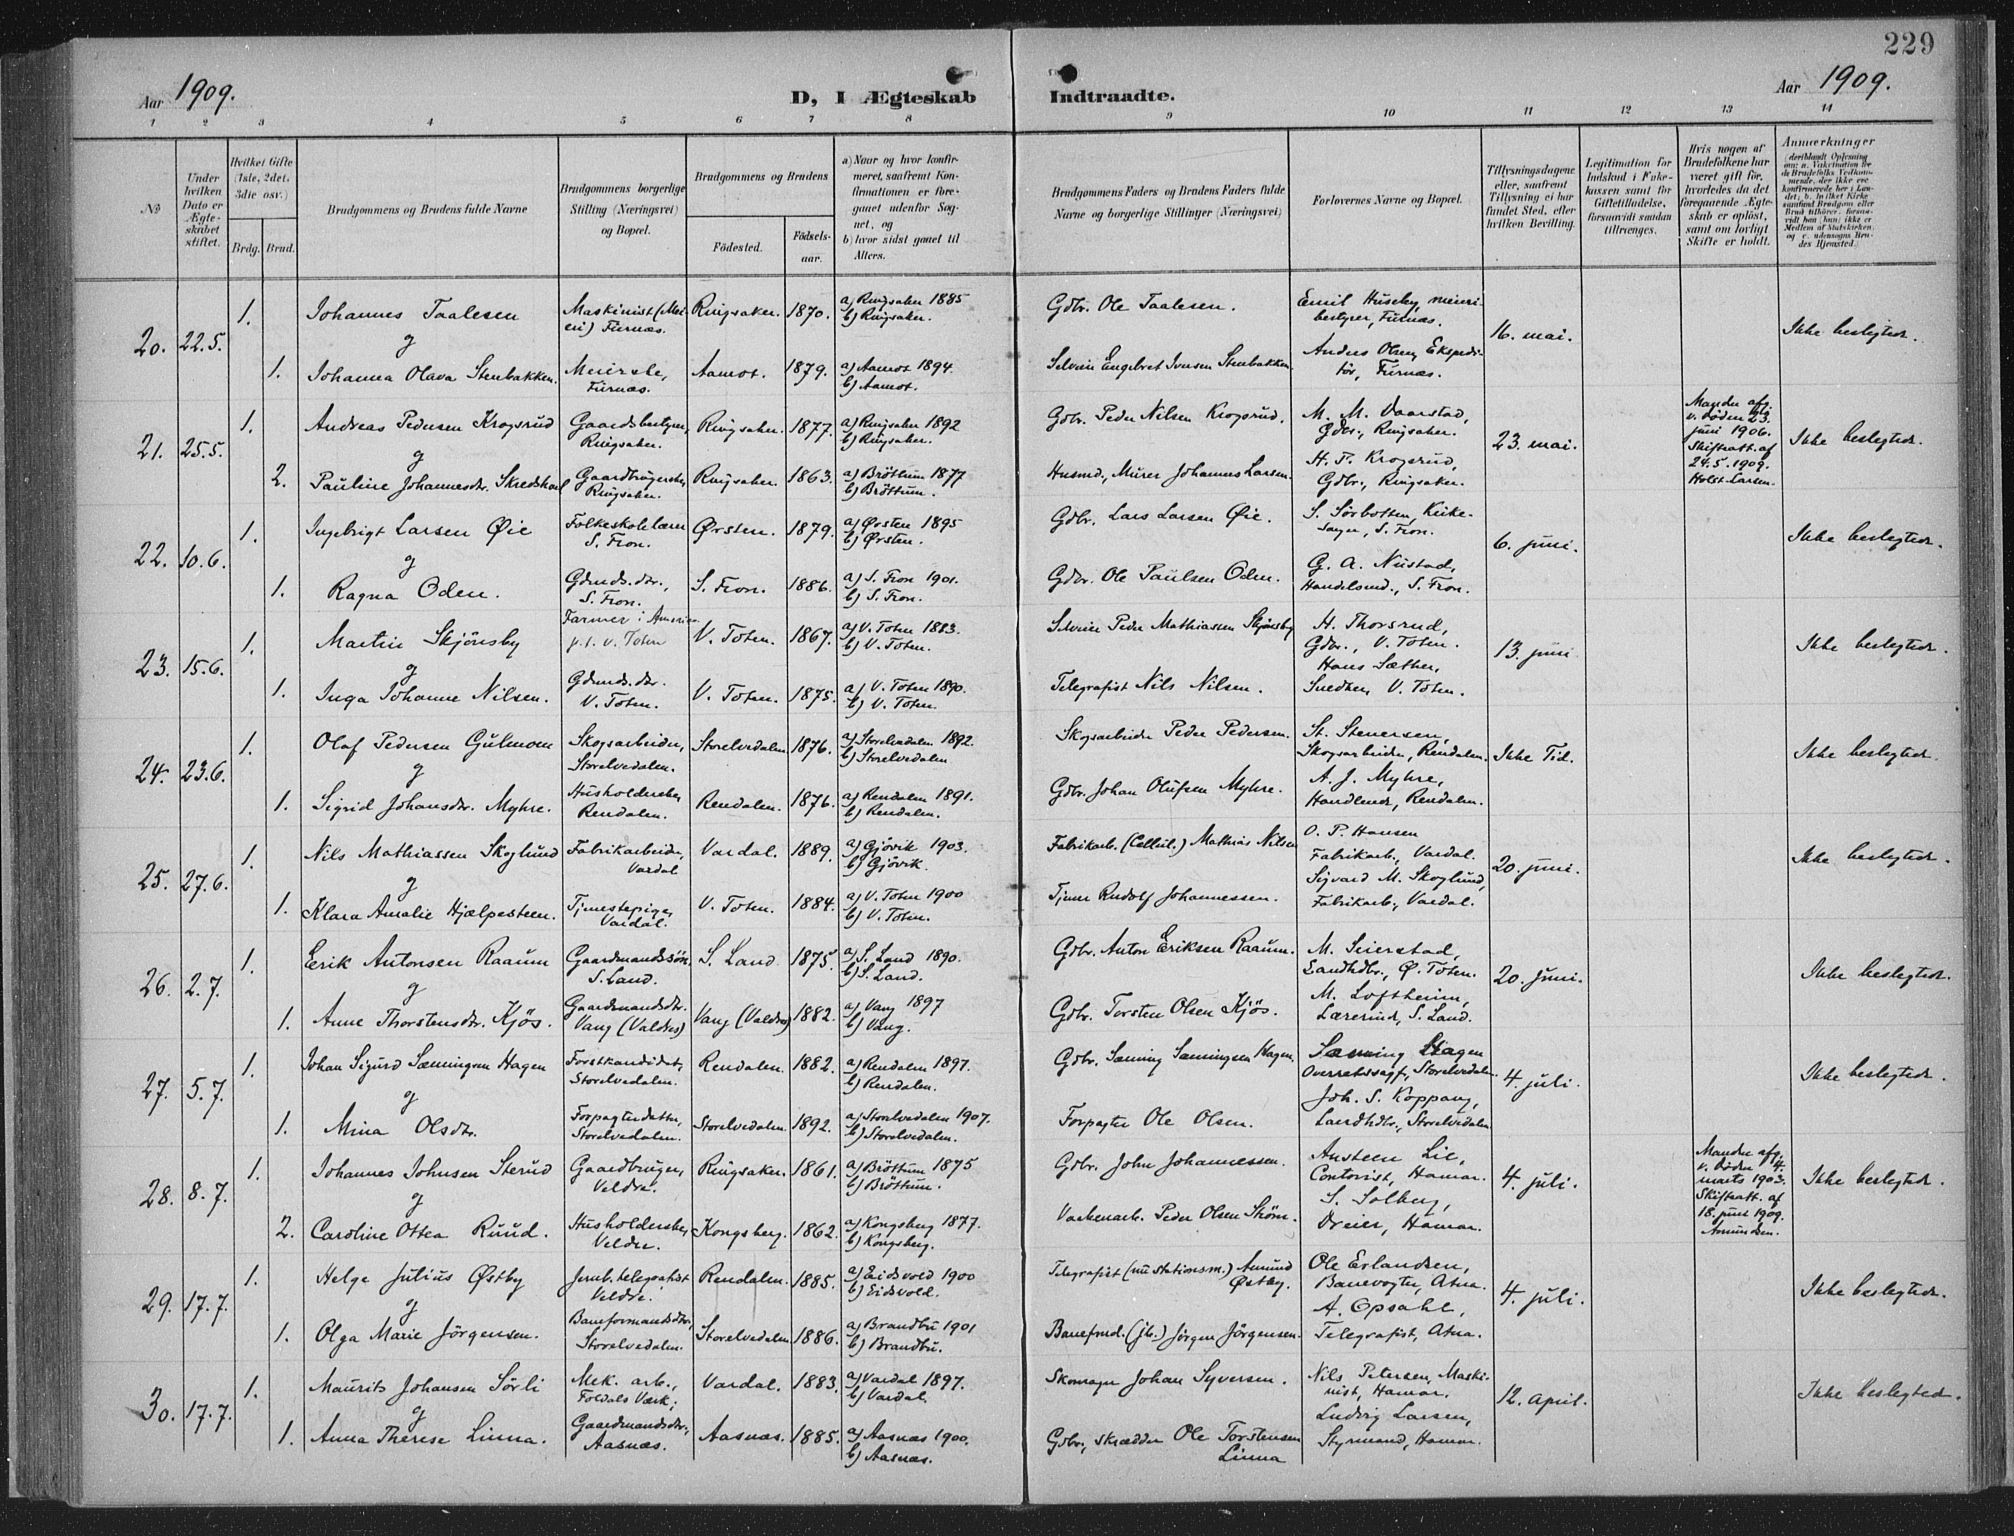 229
Aar 1909.
D, I Ægteskab Indtraadte.
Aar 1909.
1 2 3 4 5 6 7 8 9 10 11 12 13 14
No
Under hvilken Dato er Ægteskabet stiftet.
Hvilket Gifte (1ste, 2det, 3die osv.)
Brdg. Brud.
Brudgommens og Brudens fulde Navne
Brudgommens borgerlige Stilling (Næringsvei) og Bopæl.
Brudgommens og Brudens
Fødested.
Fødselsaar.
a) Naar og hvor konfirmeret, saafremt Konfirmationen er foregaaet udenfor Sognet, og
b) hvor sidst gaaet til Alters.
Brudgommens Faders og Brudens Faders fulde Navne og borgerlige Stillinger (Næringsvei)
Forlovernes Navne og Bopæl.
Tillysningsdagene eller, saafremt Tillysning ei har fundet Sted, efter hvilken Bevilling.
Legitimation for Indskud i Enkekassen samt for Giftetilladelse, forsaavidt saadan tiltrænges.
Hvis nogen af Brudefolkene har været gift før, hvorledes da det foregaaende Ægteskab er opløst, samt om lovligt Skifte er holdt.
Anmærkninger
20. 22.5. 1. Johannes Taalesen Maskinist (Meieri) Furnæs. Ringsaker. 1870. a) Ringsaker 1885 b) Ringsaker. Gdbr. Ole Taalesen. Emil Huseby, meieribestyrer, Furnæs. 16. mai. Ikke beslegtede.
og
1. Johanna Olava Stenbakken. Meierske, Furnæs. Aamot. 1879. a) Aamot 1894. b) Aamot. Selveier Engebret Iversen Stenbakken Anders Olsen, Ekspeditør, Furnæs.
21. 25.5. 1. Andreas Pedersen Krogsrud Gaardsbestyrer, Ringsaker. Ringsaker. 1877. a) Ringsaker 1892 b) Ringsaker. Gdbr. Peder Nilsen Krogsrud. M. M. Vaarstad, Gdbr., Ringsaker. 23. mai. Manden afg. v. Døden 23. juni 1906. Skifteatt. af 24.5.1909. Holst-Larsen. Ikke beslegtede.
og
2. Pauline Johannesdr. Skredshol Gaardbrugerske, Ringsaker. Ringsaker. 1863. a) Brøttum 1877 b) Brøttum. Husmd., Murer Johannes Larsen. H. P. Krogsrud, Gdbr., Ringsaker.
22. 10.6. 1. Ingebrigt Larsen Øie Folkeskolelærer S. Fron. Ørsten. 1879. a) Ørsten 1895 b) Ørsten. Gdbr. Lars Larsen Øie. S. Sörbotten, Kirkesanger, S. Fron. 6. juni. Ikke beslegtede.
og
1. Ragna Oden. Gdmds. dtr., S. Fron. S. Fron. 1886. a) S. Fron 1901. b) S. Fron. Gdbr. Ole Paulsen Oden. G. A. Nustad, Handelsmd., S. Fron.
23. 15.6. 1. Martin Skjønsby Farmer i Amerika p.t. V. Toten V. Toten. 1867. a) V. Toten 1883. b) V. Toten. Selveier Peder Mathiassen Skjønsby H. Thorsrud, Gdbr., V. Toten. 13. juni Ikke beslegtede.
og
1. Inga Johanne Nilsen. Gdmds. dtr. V. Toten. V. Toten. 1875. a) V. Toten 1890. b) V. Toten. Telegrafist Nils Nilsen. Hans Sæther, Snedker, V. Toten.
24. 23.6. 1. Olaf Pedersen Gulmoen Skogsarbeider, Storelvedalen. Storelvedalen 1876. a) Storelvedalen 1892. b) Storelvedalen Skogsarbeider Peder Pedersen. St. Stenersen, Skogsarbeider, Rendalen. Ikke Tid. Ikke beslegtede.
og
1. Sigrid Johansdtr. Myhre. Husholderske, Rendalen. Rendalen. 1876. a) Rendalen 1891. b) Rendalen. Gdbr. Johan Olufsen Myhre. A. J. Myhre, Handlende, Rendalen.
25. 27.6. 1. Nils Mathiassen Skoglund Fabrikarbeider, Vardal Vardal. 1889. a) Gjøvik 1903. b) Gjøvik. Fabrikarb. (Cellul.) Mathias Nilsen O. P. Hansen Fabrikarb., Vardal. 20. juni. Ikke beslegtede.
og
1. Klara Amalie Hjælpesteen. Tjenestepige, Vardal. V. Toten. 1884. a) V. Toten 1900 b) V. Toten. Tjener Rudolf Johannessen. Sigvard M. Skoglund, Fabrikarb., Vardal.
26. 2.7. 1. Erik Antonsen Raaum Gaardmandssøn, S. Land. S. Land 1875. a) S. Land 1890. b) S. Land. Gdbr. Anton Eriksen Raaum. M. Seierstad, Landhdlr., Ø. Toten. 20. juni. Ikke beslegtede.
og
1. Anne Thorstensdtr. Kjøs. Gaardmandsdtr. Vang (Valdres) Vang (Valdres) 1882. a) Vang 1897 b) Vang. Gdbr. Torsten Olsen Kjøs. M. Loftheim, Lærerinde, S. Land.
27. 5.7. 1. Johan Sigurd Sæmingsen Hagen Forstkandidat, Storelvedalen. Rendalen. 1882. a) Rendalen 1897. b) Rendalen. Gdbr. Sæming Sæmingsen Hagen. Sæming Hagen Overretssagf., Storelvedalen. 4. juli. Ikke beslegtede.
og
1. Mina Olsdtr. Forpagterdatter, Storelvedalen. Storelvedalen. 1892. a) Storelvedalen 1907. b) Storelvedalen. Forpagter Ole Olsen. Joh. S. Koppang, Landhdlr., Storelvedalen
28. 8.7. 1. Johannes Johnsen Sterud Gaardbruger, Veldre. Ringsaker. 1861. a) Brøttum 1875 b) Brøttum. Gdbr. John Johannessen. Austeen Lie, Contorist, Hamar. 4. juli. Manden afg. v. Døden 4. marts 1903. Skifteatt. af 18. juni 1909. Amundsen. Ikke beslegtede.
og
2. Caroline Ottea Ruud. Husholderske, Veldre. Kongsberg. 1862. a) Kongsberg 1877. b) Kongsberg. Værkenarb. Peder Olsen Skøien. S. Solberg, Dreier, Hamar.
29. 17.7. 1. Helge Julius Østby Jernb. telegrafist Veldre. Rendalen. 1885. a) Eidsvold 1900 b) Eidsvold. Telegrafist (nu stationsm.) Amund Østby. Ole Erlandsen, Banevogter, Atna. 4. juli. Ikke beslegtede.
og
1. Olga Marie Jørgensen. Baneformandsdtr., Storelvedalen. Storelvedalen 1886. a) Brandbu 1901 b) Brandbu. Banefmd. (jb.) Jørgen Jørgensen. A. Opsahl, Telegrafist, Atna.
30. 17.7. 1. Maurits Johansen Sörli Mek. arb., Foldals Værk; Vardal. 1883. a) Vardal 1897. b) Vardal. Skomager Johan Syversen. Nils Petersen, Maskinist, Hamar. 12. April. Ikke beslegtede.
og
1. Anna Therese Linna. Gaardmandsdtr., Aasnæs. Aasnæs. 1885. a) Aasnæs 1900. b) Aasnæs. Gdbr., skrædder Ole Torstensen Linna Ludvig Larsen, Styrmand, Hamar.